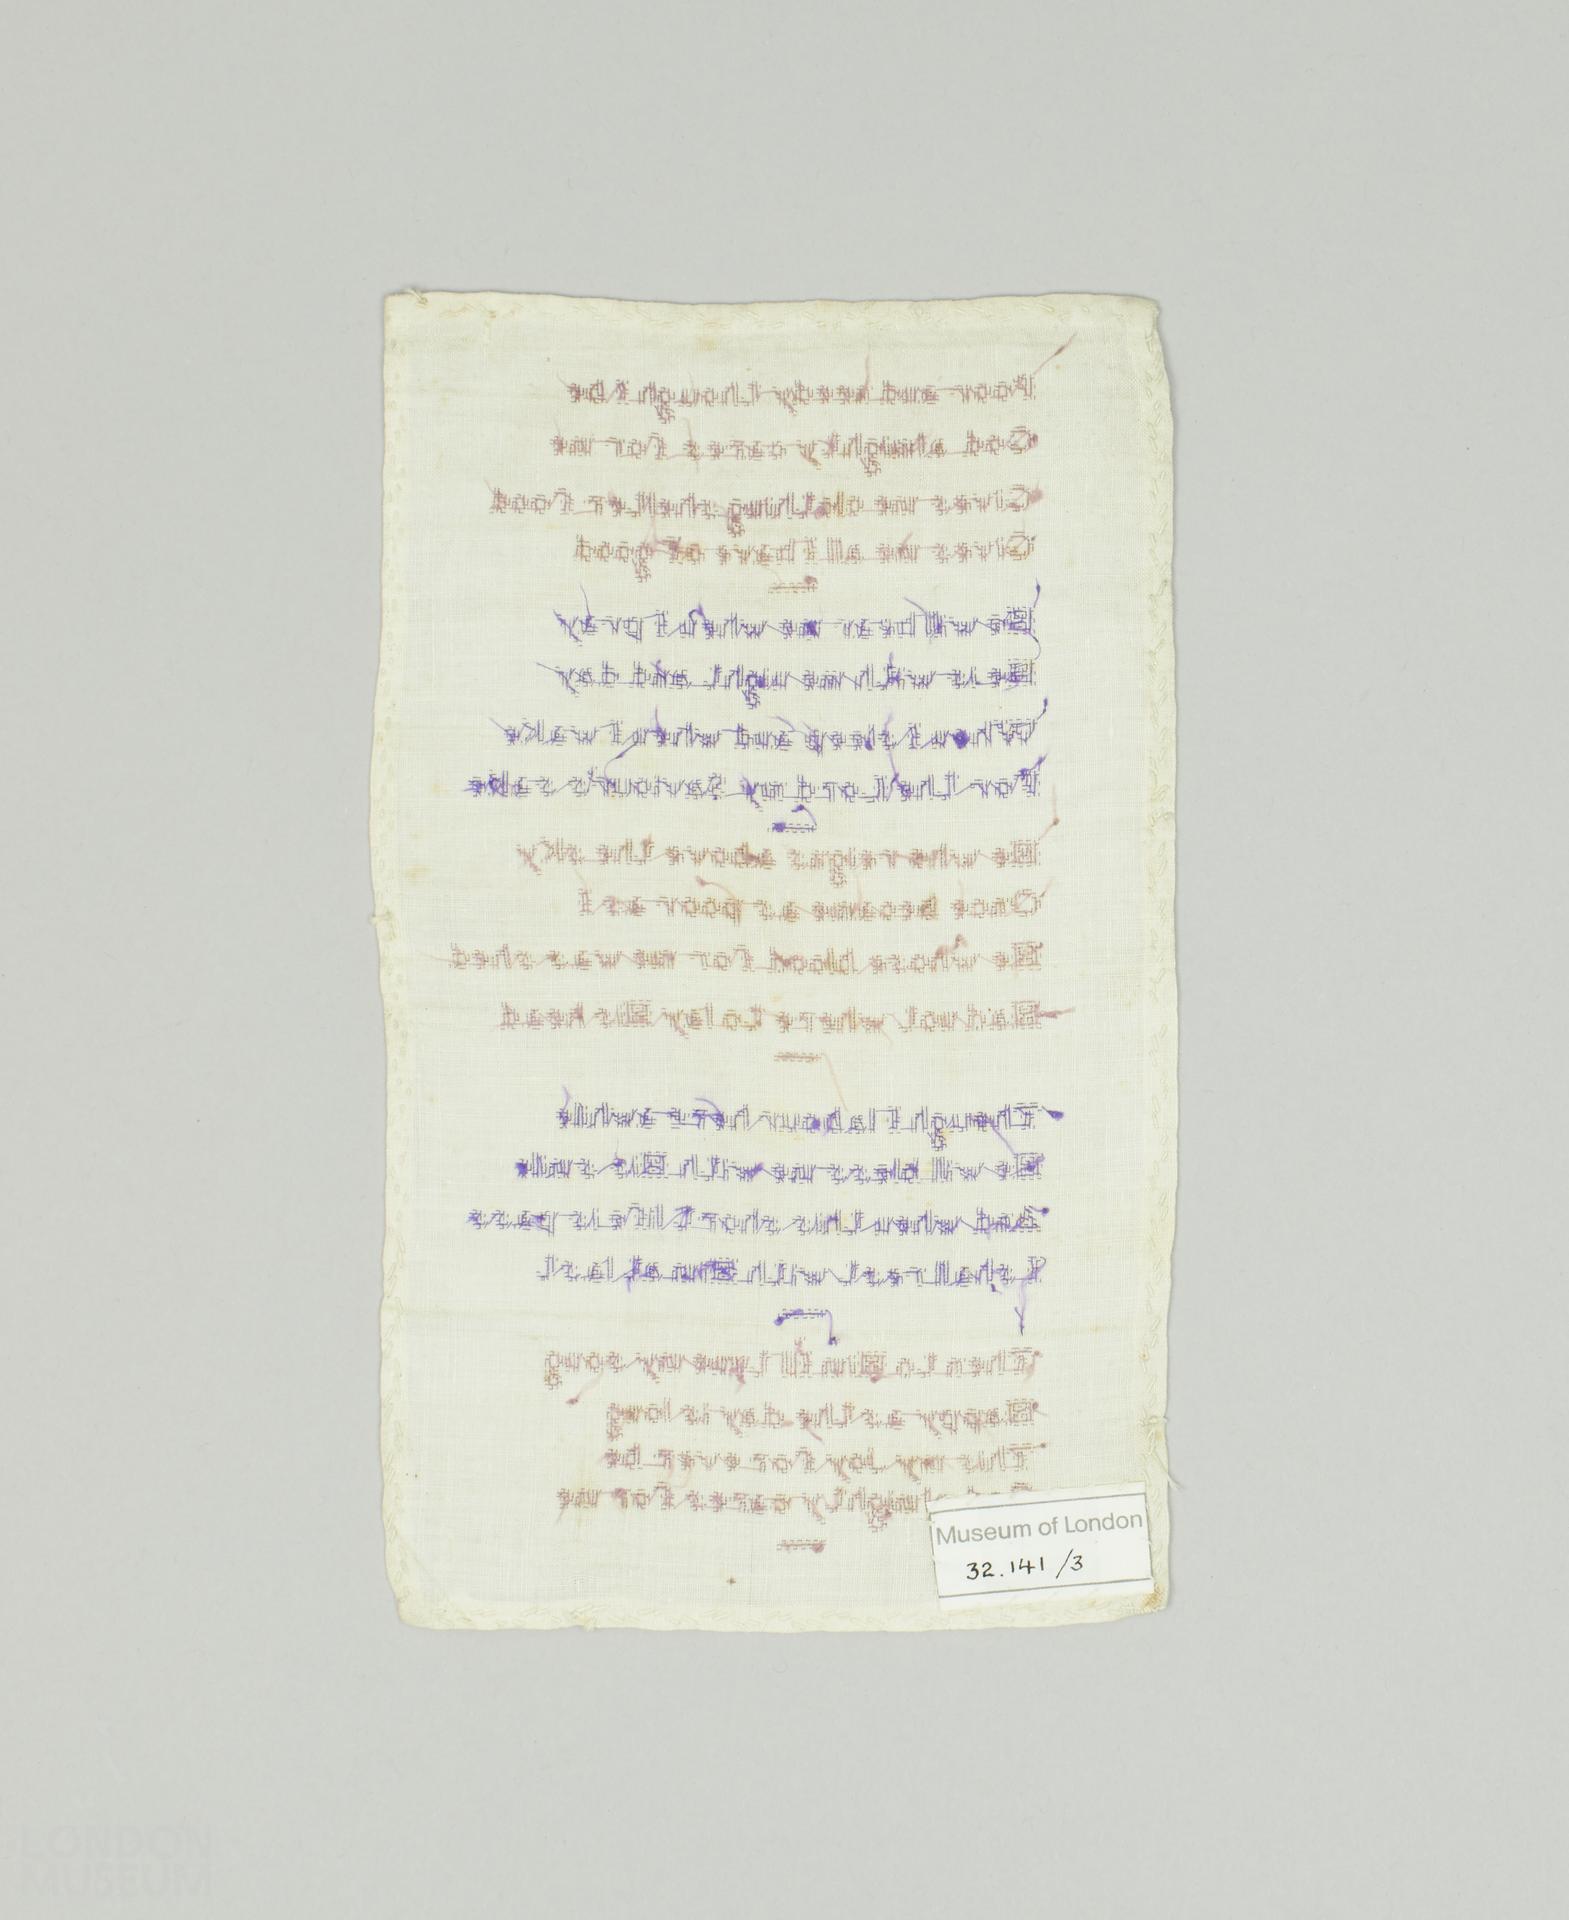 Poor and needy though I be
God almighty cares for me
Gives me clothing shelter food
Gives me all I have of good
He will hear me when I pray
He is with me night and day
When I sleep and when I wake
For the Lord my Saviour's sake
He who reigns above the sky
Once became as poor as I
He whose blood for me was shed
Had not where to lay His head
Though I labour here awhile
He will bless me with His smile
And when this short life is past
I shall rest with Him at last
Then to Him I'll tune my song
Happy as the day is long
This my joy for ever be
God almighty cares for me
Museum of London
32.141/3
LONDON
MUSEUM